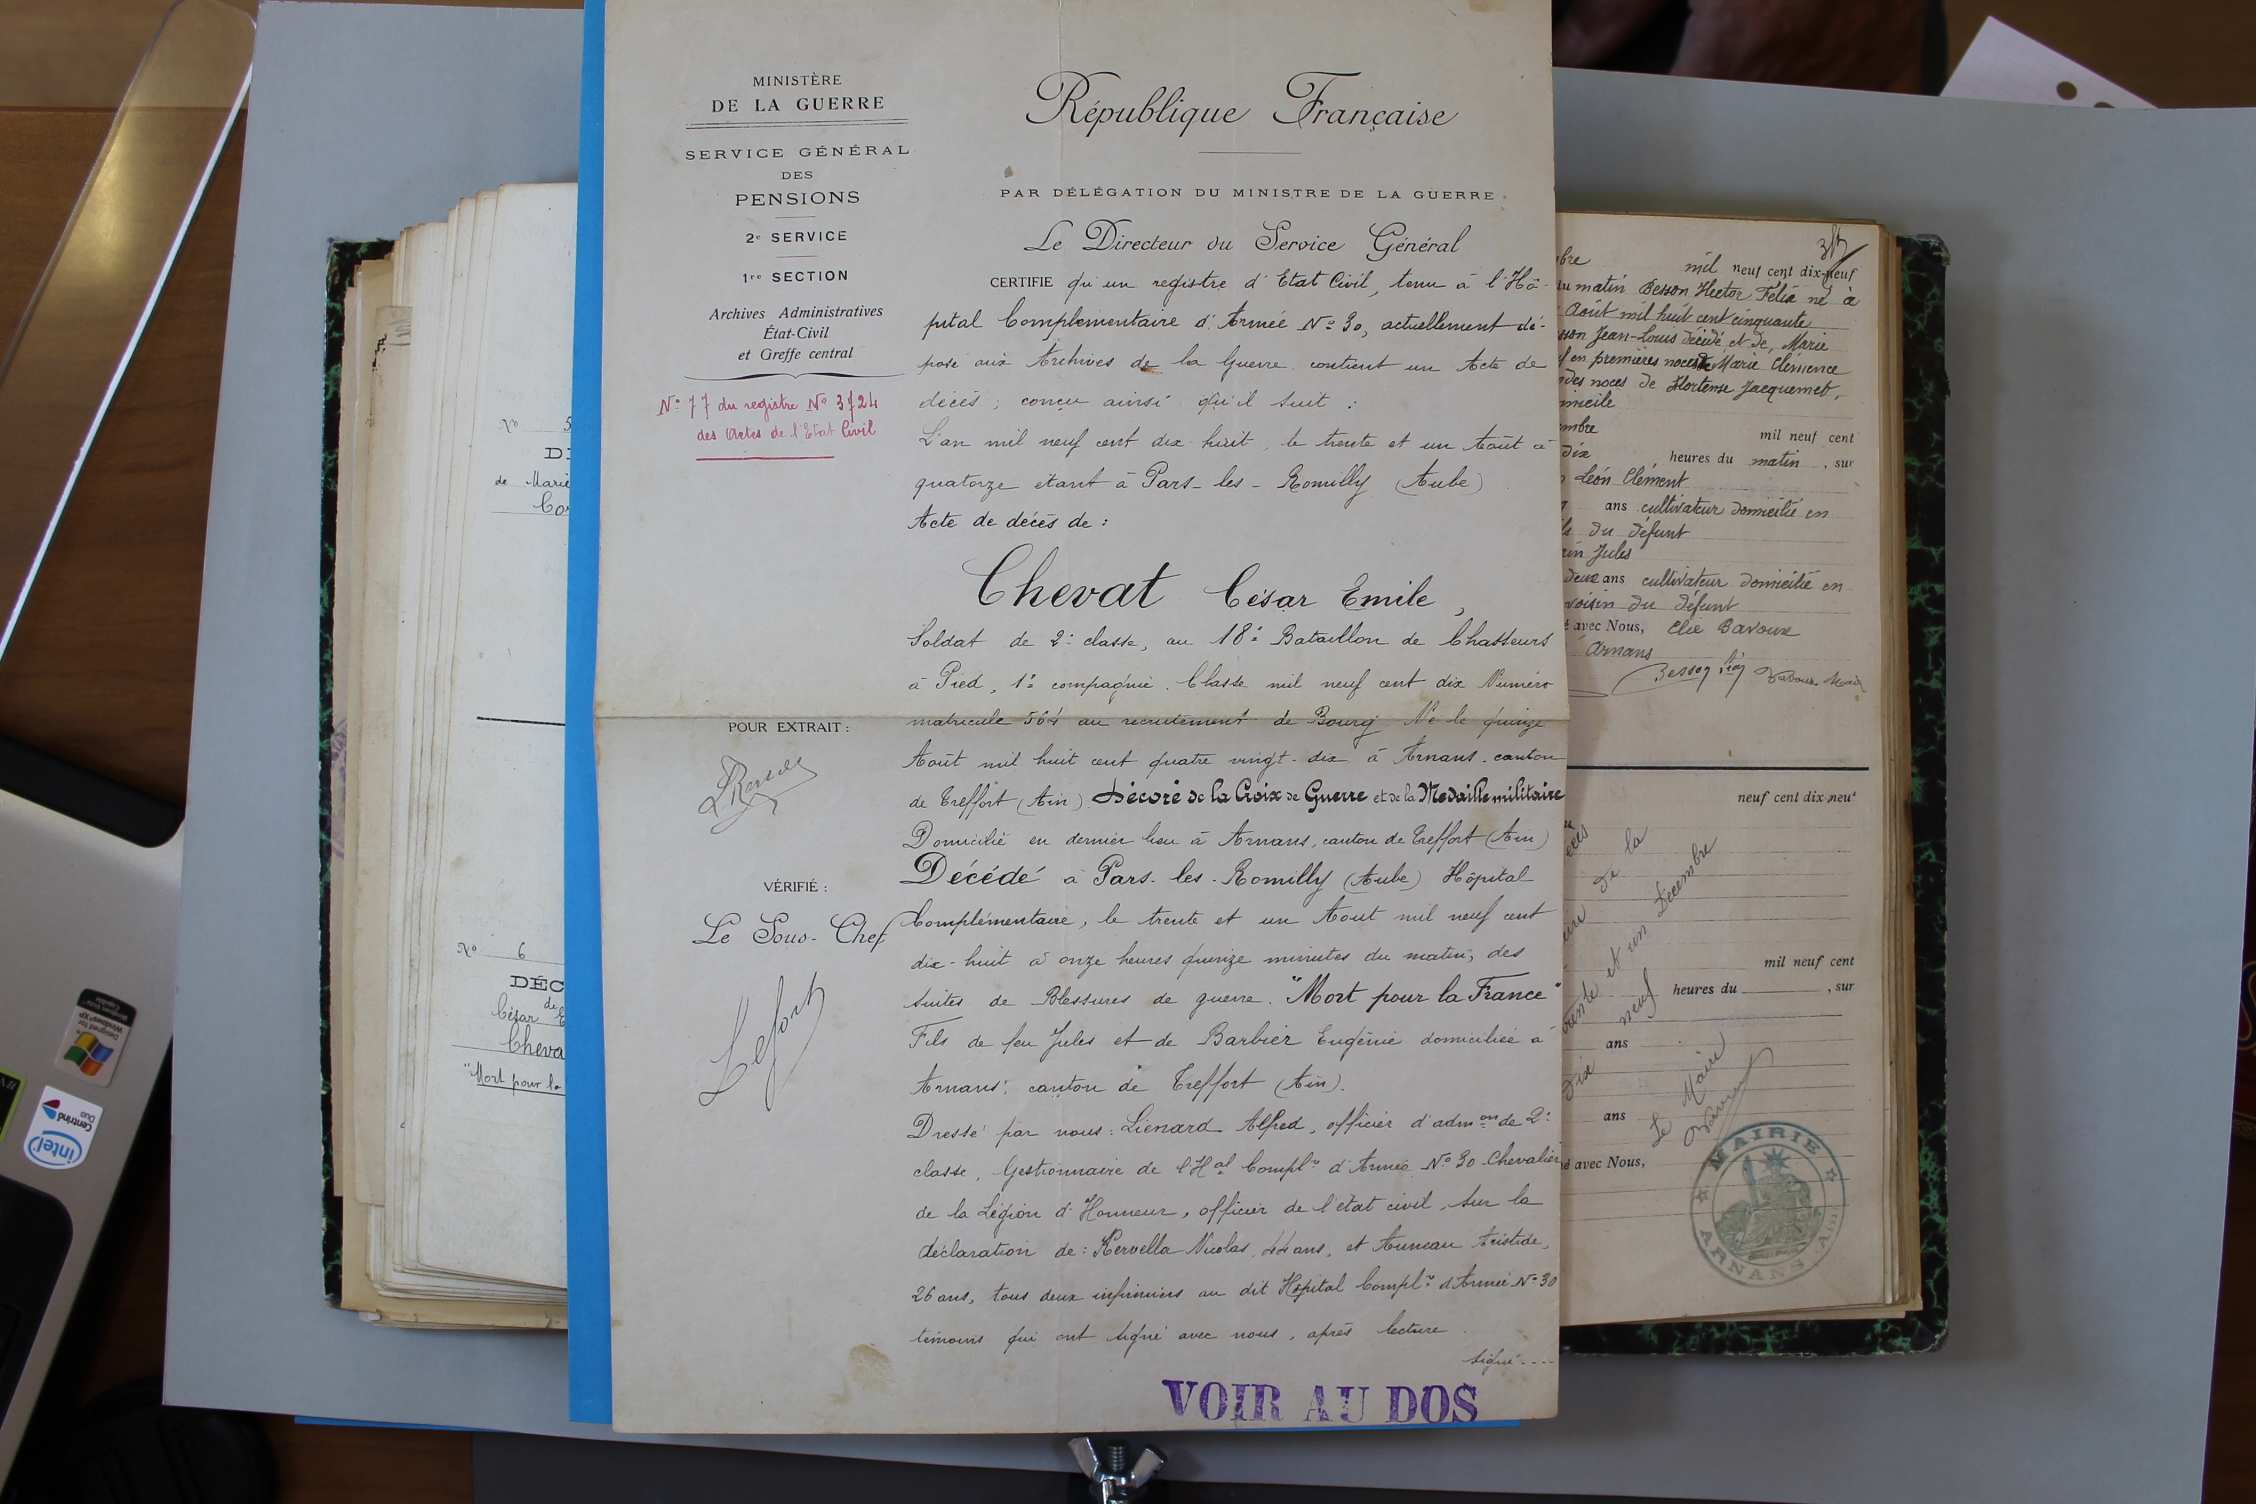 MINISTÈRE
DE LA GUERRE
SERVICE GÉNÉRAL
DES
PENSIONS
2e SERVICE
1re SECTION
Archives Administratives
État-Civil
et Greffe central
No 77 du registre No 3724
des Actes de l'Etat Civil
POUR EXTRAIT :
VÉRIFIÉ :
Le Sous-Chef
Lefort
République Française
PAR DÉLÉGATION DU MINISTRE DE LA GUERRE
Le Directeur du Service Général
CERTIFIE qu'un registre d'Etat Civil, tenu à l'Hô-
pital Complémentaire d'Armée No 30, actuellement dé-
posé aux Archives de la Guerre contient un Acte de
décès, conçu ainsi qu'il suit :
L'an mil neuf cent dix-huit, le trente et un Août à
quatorze étant à Pars-les-Romilly (Aube)
Acte de décès de :
Chevat César Emile,
Soldat de 2e classe, au 18e Bataillon de Chasseurs
à Pied, 1e compagnie. Classe mil neuf cent dix Numéro
matricule 564 au recrutement de Bourg. Né le quinze
Août mil huit cent quatre vingt-dix à Arnans, canton
de Treffort (Ain) Décoré de la Croix de Guerre et de la Médaille militaire
Domicilié en dernier lieu à Arnans, canton de Treffort (Ain)
Décédé à Pars-les-Romilly (Aube) Hôpital
Complémentaire, le trente et un Août mil neuf cent
dix-huit à onze heures quinze minutes du matin, des
suites de Blessures de guerre. "Mort pour la France"
Fils de feu Jules et de Barbier Eugénie domiciliée à
Arnans, canton de Treffort (Ain).
Dressé par nous : Lienard Alfred, officier d'admon de 2e
classe, Gestionnaire de l'Hal Complre d'Armée No 30 Chevalier
de la Légion d'Honneur, officier de l'état civil, sur la
déclaration de : Kervella Nicolas, 44 ans, et Auneau Aristide,
26 ans, tous deux infirmiers au dit Hôpital Complre d'Armée No 30
témoins qui ont signé avec nous, après lecture
signé ----
VOIR AU DOS
No 5
de Marie
No 6
DÉC
de
César E
Cheva
"Mort pour la
bre mil neuf cent dix-neuf
du matin Besson Hector Félix né à
Août mil huit cent cinquante
sson Jean-Louis décédé et de, Marie
en premières noces de Marie Clémence
des noces de Hortense Jacquemet,
micile
embre mil neuf cent
dix heures du matin, sur
Léon Clément
ans cultivateur domicilié en
du défunt
Jules
deux ans cultivateur domicilié en
voisin du défunt
avec Nous, Elie Bavoux
Arnans
Besson Léon
neuf cent dix-neuf
de la
trente et un Décembre
mil neuf cent
neuf heures du , sur
ans
dix
ans
Le Maire
avec Nous,
MAIRIE
ARNANS (Ain)
intel
Centrino
Duo
Designed for
Windows XP